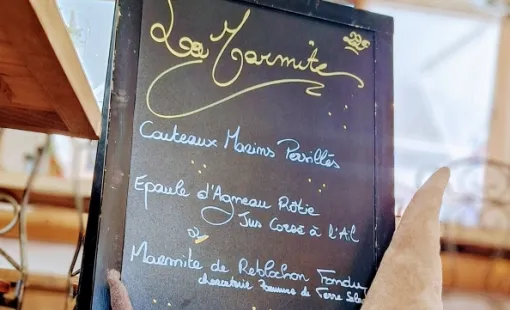 La Marmite
Couteaux Marins Persillés
Epaule d'Agneau Rôtie
Jus Corsé à l'Ail
Marmite de Reblochon Fondu
charcuterie Pommes de Terre